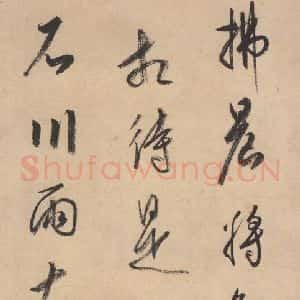 拂晨将
相待是
石川雨
Shufawang.CN